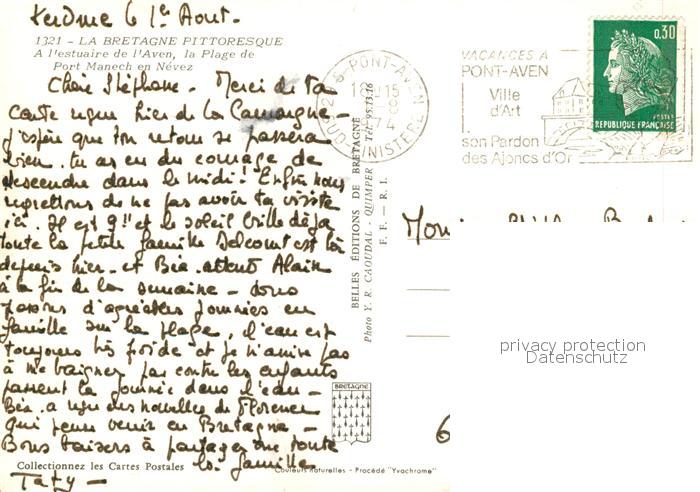 Kerdruc le 1er Aout.
1321 - LA BRETAGNE PITTORESQUE
A l'estuaire de l'Aven, la Plage de
Port Manech en Névez
Chère Stéphane - Merci de ta
carte reçue hier de la Camargue -
j'espère que ton retour se passera
bien. tu as eu du courage de
descendre dans le midi! Enfin nous
regrettons de ne pas avoir ta visite
ici. Il est 9h et le soleil brille déjà
toute la petite famille Delcourt est là
depuis hier - et Béa attend Alain
à la fin de la semaine - nous
passons d'agréables journées en
famille sur la plage, l'eau est
toujours très froide et je n'arrive pas
à me baigner par contre les enfants
passent la journée dans l'eau -
Béa a reçu des nouvelles de Florence
qui pense venir en Bretagne -
Bons baisers à partager avec toute
la famille
Taty -
Collectionnez les Cartes Postales
BELLES ÉDITIONS DE BRETAGNE
Photo Y. R. CAOUDAL - QUIMPER - Tél. 95.13.16
E. F. - R. I.
BRETAGNE
Couleurs naturelles - Procédé "Yvachrome"
29 S - PONT-AVEN
18H15
1-8
74
SUD-FINISTERE
VACANCES A
PONT-AVEN
Ville
d'Art
son Pardon
des Ajoncs d'Or
0,30
POSTES
REPUBLIQUE FRANÇAISE
privacy protection
Datenschutz